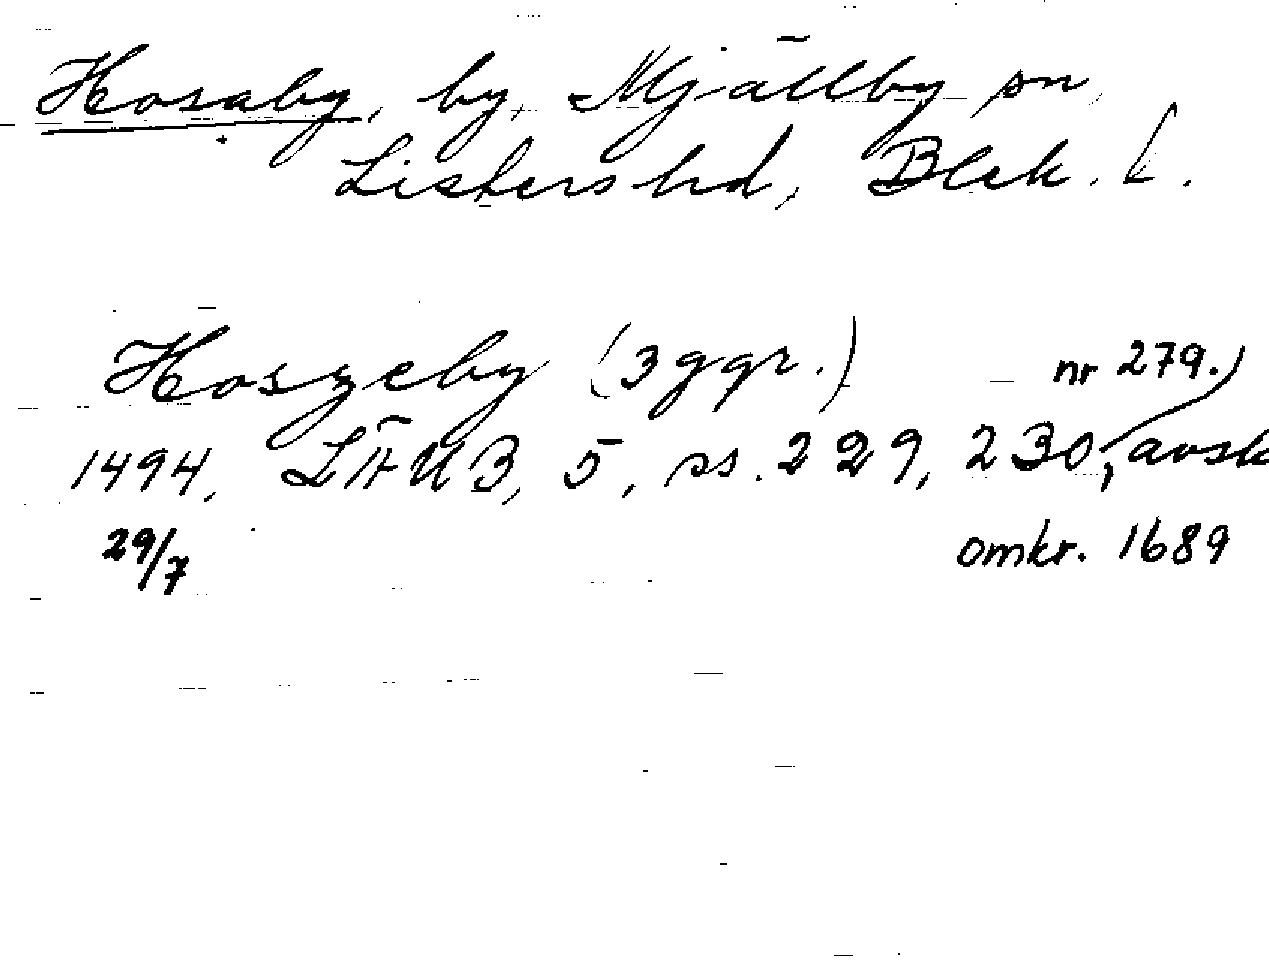 Hosaby, by, Mjällby sn,
Listers hd, Blek. l.
Hoszeby (3 ggr.) nr 279.)
1494, LÄUB, 5, ss. 229, 230, avsk
29/7 omkr. 1689